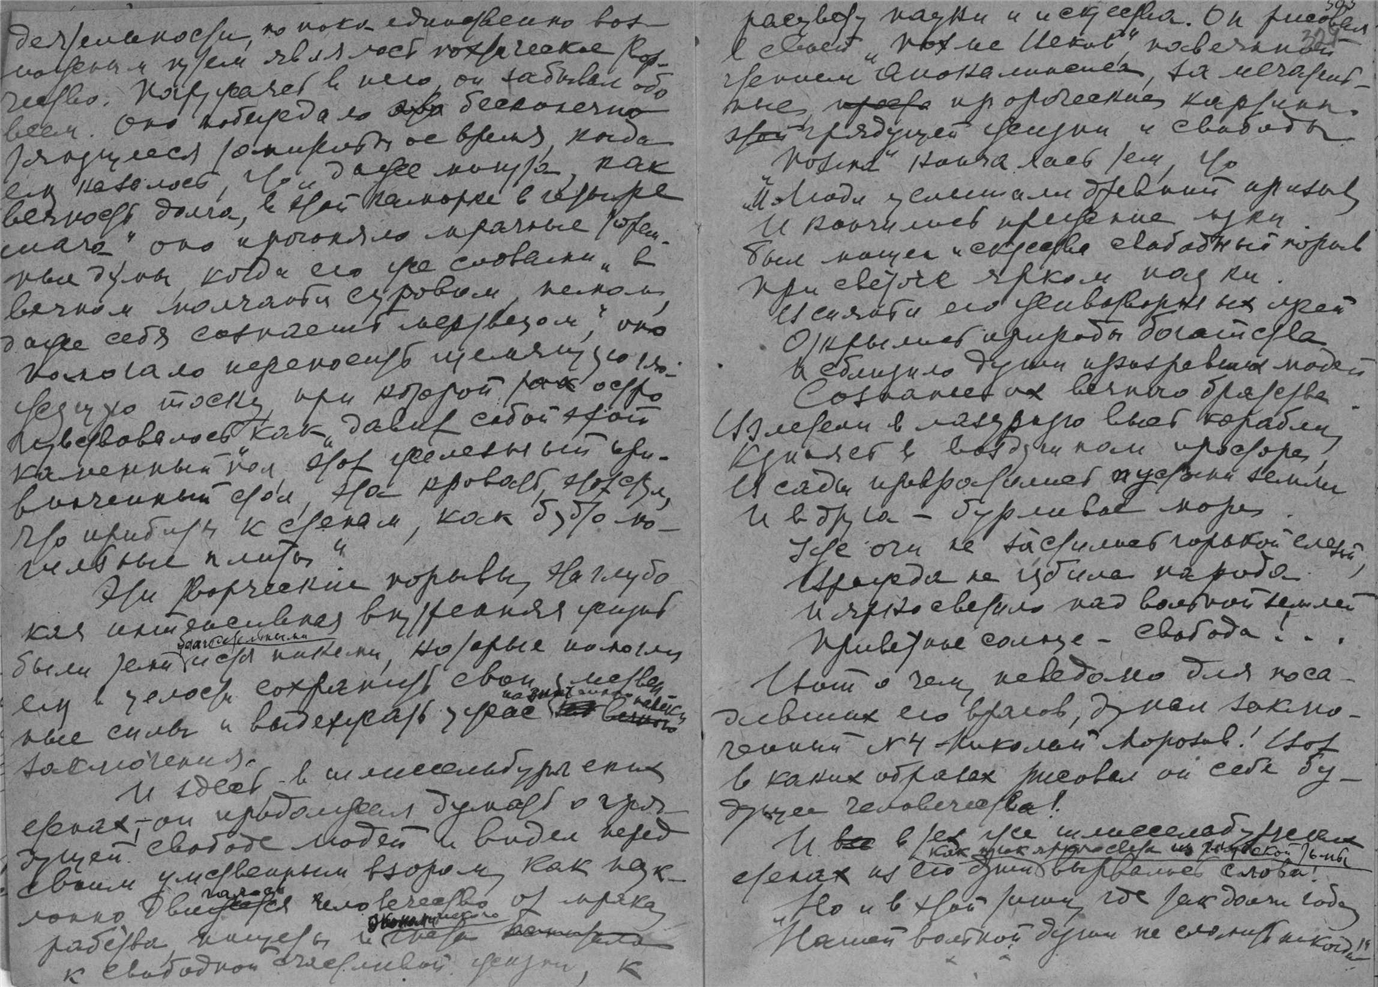 деятельности, но пока единственно воз-
можным путем являлось поэтическое твор-
чество. Погружаясь в него, он забывал обо
всем. Оно побеждало бесконечно
тянущееся томительное время, когда
ему казалось, что „даже минута, как
вечность долга, в этой каморке в четыре
шага“ оно прогоняло мрачные тюрем-
ные думы, когда его же словами „в
вечном молчаньи суровом, немом,
даже себя сознаешь мертвецом“, оно
помогало переносить щемящую гло-
жущую тоску, при которой так остро
чувствовалось как „давит собой этот
каменный пол, этот железный при-
винченный стол, эта кровать, этот стул,
что прибиты к стенам, как будто мо-
гильные плиты“
Эти творческие порывы, эта глубо
кая интенсивная внутренняя жизнь
были теми благодетельными источниками, которые помогли
ему в целости сохранить свои умствен
ные силы и выдержать ужас
заключения.
И здесь в шлиссельбургских
стенах, – он продолжал думать о гряд-
дущей свободе людей и видел перед
своим умственным взором, как нук-
лонно двигалось человечество от мрака,
рабства, нищеты и экономического гнета
к свободной счастливой жизни, к
расцвету науки и искусства. Он рисовал
в своей „поэме веков“, навеянной
чтением „Апокалипсиса“, замечатель-
ные, пророческие картины
грядущей жизни и свободы
Поэма кончалась тем, что
„Люди услышали древний призыв
И кончились прежние муки
Был мощен искусства свободный порыв
При свете ярком науки.
И силой его животворных лучей
Открылись природы богатства
И сблизило души прозревших людей
Сознанье их вечного братства.
Взлетели в лазурную высь корабли,
Купаясь в воздушном просторе,
И сады превратились пустыни земли
И в друга – бурливое море.
Уже очи не застились горькой слезой,
Вражда не губила народа
И ярко светило над вольной землей
Приветное солнце – свобода!...
Вот о чем, неведомо для поса-
дивших его врагов, думал заклю-
ченный №4 – Николай Морозов! Вот
в каких образах рисовал он себе бу-
дущее человечества!
И в тех же шлиссельбургских
стенах из его души как крик протеста из глубокой тьмы вырвались слова:
„Но и в этой тиши, где так долги года
Нашей вольной души не сломить никогда!“